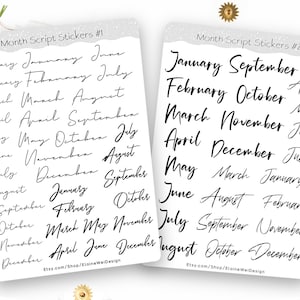 Month Script Stickers #1
January June
February July
March August
April September
May October July
November August
December September
January
September February October
October March May November
November April June December
December
Etsy.com/Shop/ElaineWeiDesign
Month Script Stickers #2
January September
February October
March November
April December
May March January
June August
July September November
August October December
Etsy.com/Shop/ElaineWeiDesign